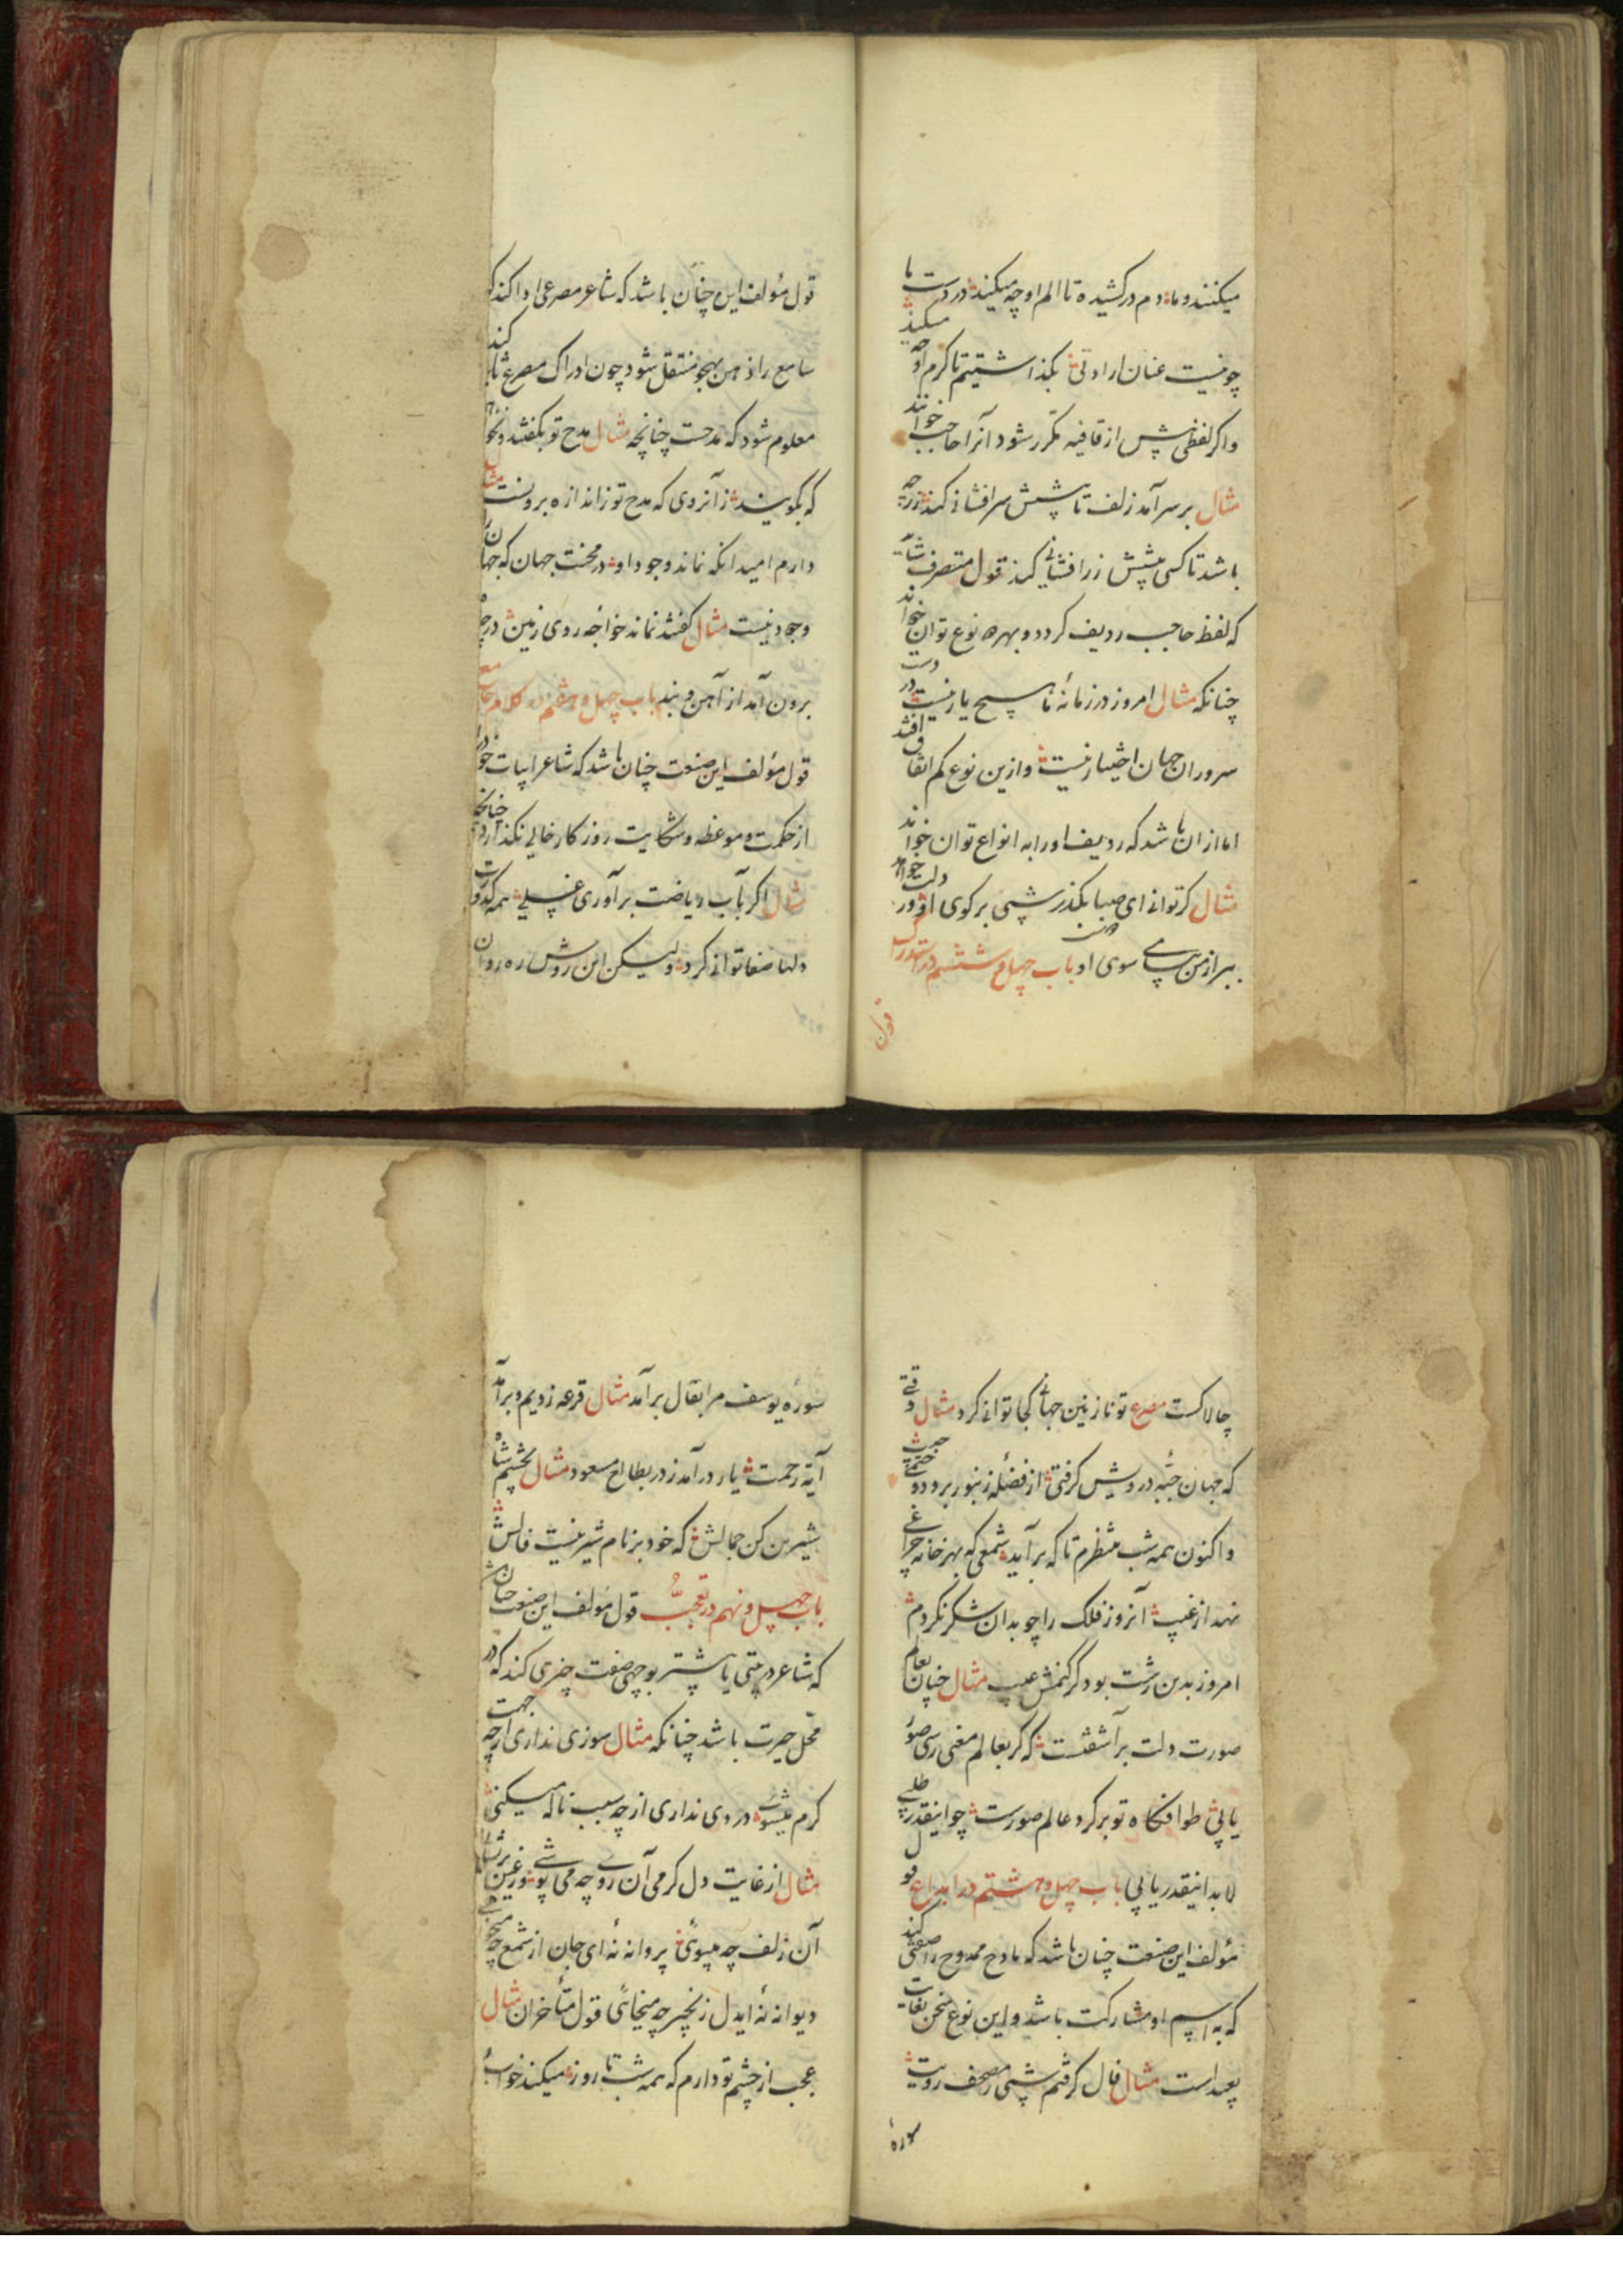 میکنند و ما دم درکشیده تا الم او چه میکند در دست ما
چو نیست عنان ارادتی بگذاشتیم تا کرم او چه میکند
واکر لفظی پیش از قافیه مکرر شود آنرا حاجب خوانند
مثال بر سر آمد زلف تا پیشش سرافشانی کند زر چه
باشد تا کسی پیشش زرافشانی کند قول متصرف
که لفظ حاجب ردیف کردد و بهر نوع توان خواند
چنانکه مثال امروز در زمانه ما هیچ یار نیست در دست
سروران جهان اختیار نیست و ازین نوع کم اتفاق افتد
اما از ان باشد که ردیف او را به انواع توان خواند
مثال کر توانی ای صبا بگذر شبی بر کوی او ور دلت خواهد
ببر از من پیامی سوی او باب چهل و ششم در استدراک
قول
قول مؤلف این چنان باشد که شاعر مصرعی ادا کند که
سامع را ذهن بهجو منتقل شود چون ادراک مصرع ثانی کند
معلوم شود که مدحست چنانچه مثال مدح تو نکفتند و نخواهند
که بکویند زآنروی که مدح تو ز اندازه برونست مثال
دارم امید انکه نماند وجود او در محنت جهان که جهان را
وجود نیست مثال کفتند نماند خواجه روی زمین در چه
برون آمد از آهن و بند باب چهل و هفتم در کلام جامع
قول مؤلف این صنعت چنان باشد که شاعر ابیات خود را
از حکمت و موعظه و شکایت روزکار خالی نکذارد چنانچه
مثال اکر بآب ریاضت برآوری غسلی همه کدورت
دلها صفا توانی کرد ولیکن این روش ره روان
چالاکست مصرع تو نازنین جهانی کجا توانی کرد مثال وقتی
که جهان جبه درویش کرفتی از فضله زنبور برو دوختمی جیب
واکنون همه شب منتظرم تا که برآید شمعی که بهر خانه چراغی
نهد از غیب آنروز فلک را چو بدان شکر نکردم
امروز بدین زشت بود کر کنمش عیب مثال چنان بعالم
صورت دلت برآشفتست که کر بعالم معنی رسی صور
یابی طوافگاه تو بر کرد عالم صورت چو اینقدر طلبی
لابد اینقدر یابی باب چهل و هشتم در ابداع قول
مؤلف این صنعت چنان باشد که مادح ممدوح را صفتی کند
که به اسم او مشارکت باشد و این نوع سخن بغایت
بعید است مثال فال کرفتم شبی ز مصحف رویت
سوره
سوره یوسف مرا بفال برآمد مثال قرعه زدیم و برآمد
آیة رحمت یار درآمد ز در بطالع مسعود مثال بخشیم شاه
شیرین کن جمالش که خود بر نام شیرینست فالش
باب چهل و نهم در تعجب قول مؤلف این صنعت چنان باشد
که شاعر در بیتی یا بیشتر بوجهی صفت چیزی کند که در
محل حیرت باشد چنانکه مثال سوزی نداری از چه جهت
کرم میشوی دردی نداری از چه سبب ناله میکنی
مثال از غایت دل کرمی آن روی چه می پوشی ور عین پریشانی
آن زلف چه میبوئی پروانه نه ای جان از شمع چه میجوئی
دیوانه نه ایدل زنجیر چه میخائی قول متأخران مثال
عجب از چشم تو دارم که همه شب تا روز میکند خواب